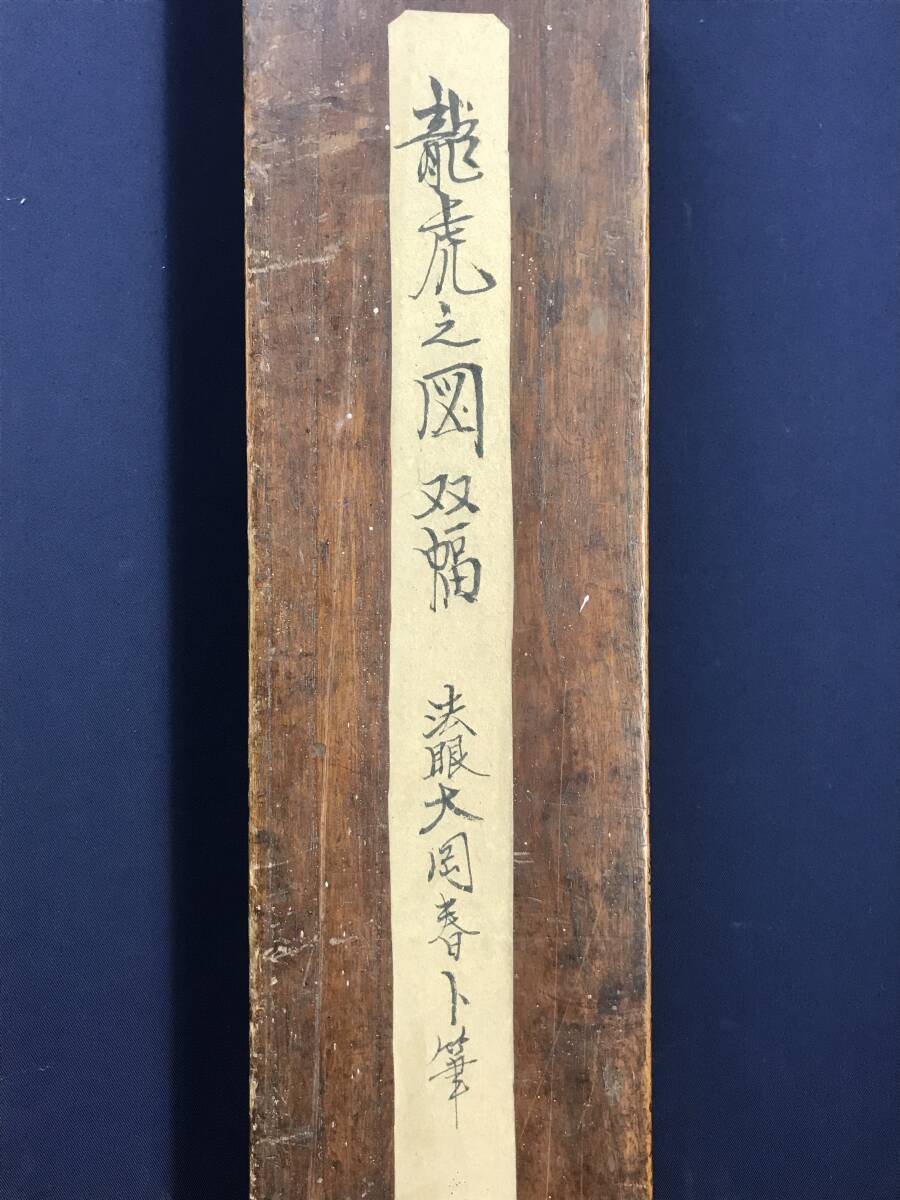 龍虎之図双幅　法眼大岡春卜筆